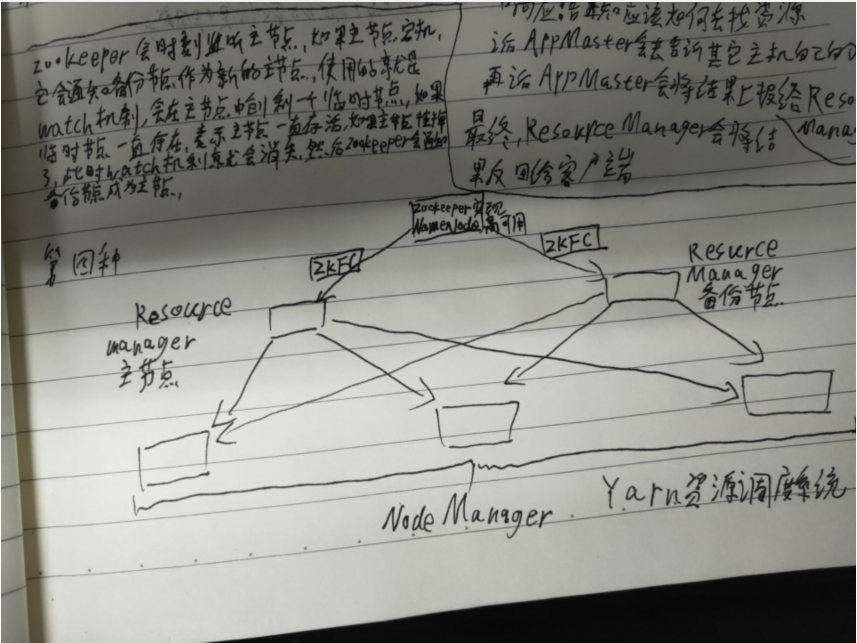 zookeeper会时刻监听主节点,如果主节点宕机,
它会通知备份节点作为新的主节点,使用的就是
watch机制,会在主节点中创一个临时节点,如果
临时节点一直存在,表示主节点一直存活,如果主节点挂掉
了,此时watch机制就会消失,然后zookeeper会通知
备份节点成为主节点,
应该如何去找资源
话AppMaster会去告诉其它主机自己的
再话AppMaster会将结果上报给Reso
Manag
最终,Resource Manager会将结
果反回给客户端
zookeeper实现
NameNode高可用
第四种
ZKFC
ZKFC
Resource
manager
主节点
Resurce
Manager
备份节点
Node Manager
Yarn资源调度系统